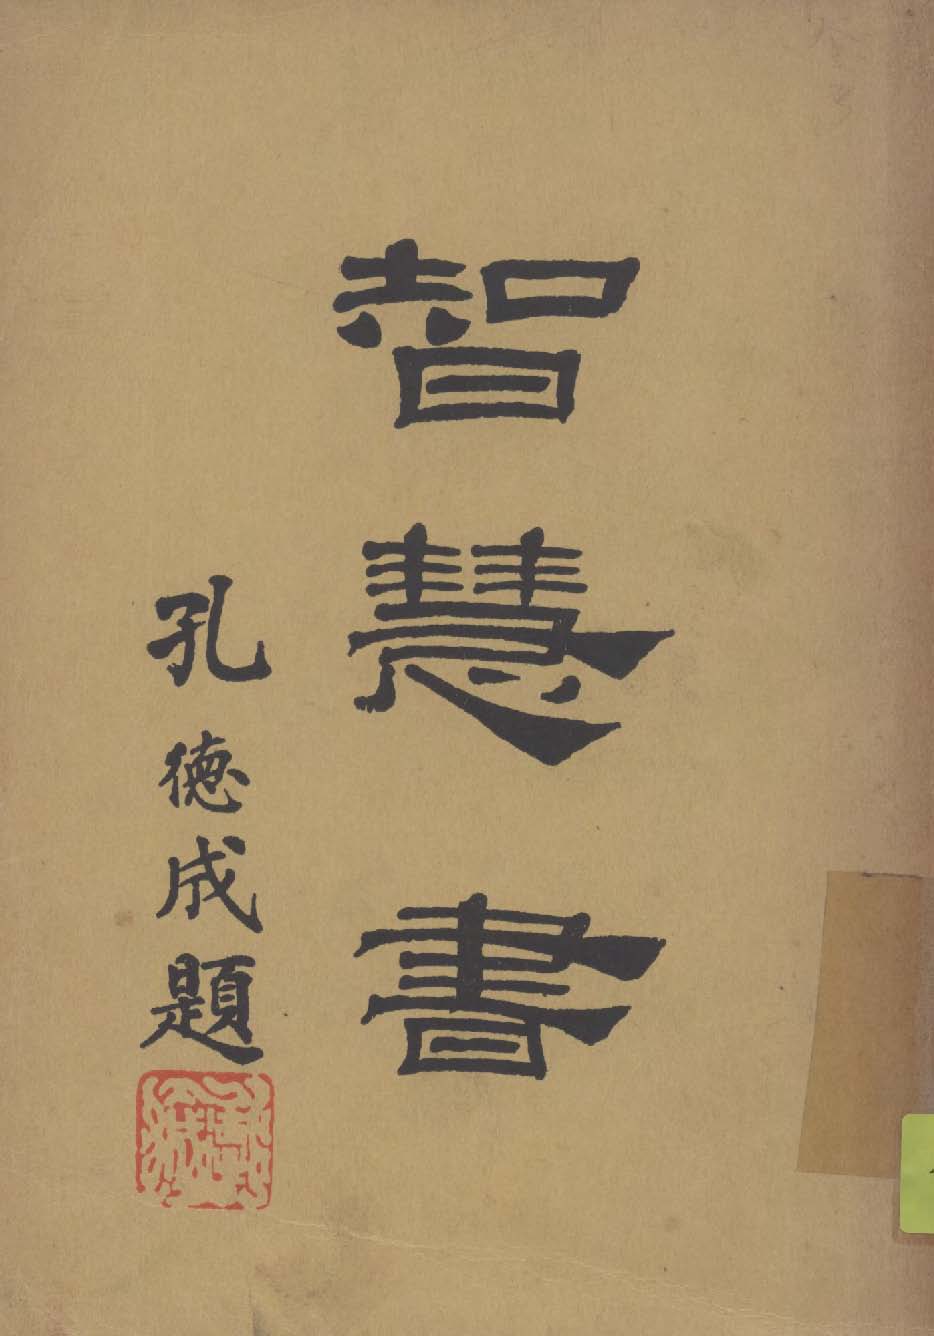 智慧書
孔德成題